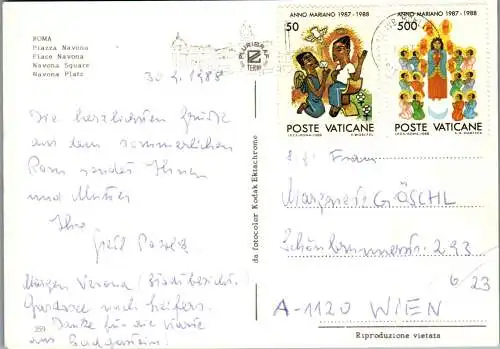 ROMA
Piazza Navona
Place Navona
Navona Square
Navona Platz
30.7.1988
PLURIGRAF
TERNI
ANNO MARIANO 1987-1988
50
POSTE VATICANE
ANNO MARIANO 1987-1988
500
POSTE VATICANE
Die herzlichsten Grüße
aus dem sommerlichen
Rom sendet Ihnen
und Mutter
Ihre
Morgen Verona (Stadtbesicht.)
Gardasee nach Seifers.
Danke für die Karte
aus Badgastein.
359
da fotocolor Kodak Ektachrome
Frau
Margarete GÖSCHL
Schönbrunnerstr. 293
6/23
A-1120 WIEN
Riproduzione vietata